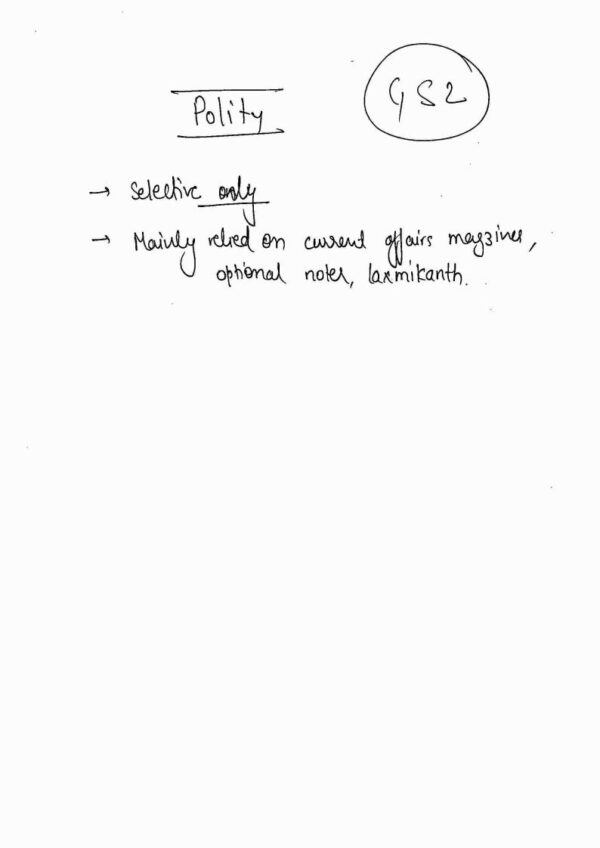 Polity
GS2
→ Selective only
→ Mainly relied on current affairs magzines,
optional notes, laxmikanth.